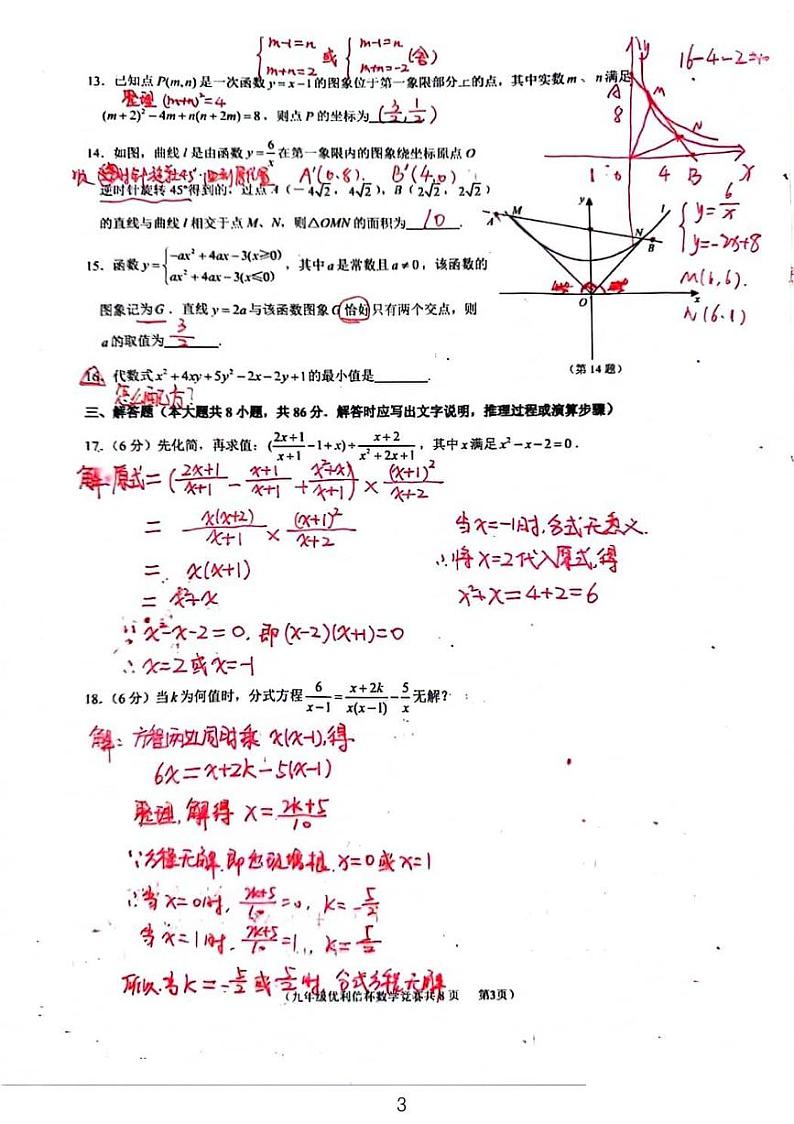 {m-1=n m+n=2 或 {m-1=n m+n=-2 (舍)
13. 已知点 P(m,n) 是一次函数 y=x-1 的图象位于第一象限部分上的点，其中实数 m 、 n 满足
整理 (m+n)²=4
(m+2)²-4m+n(n+2m)=8，则点 P 的坐标为 (3/2, 1/2)
16-4-2=10
y
A
8
M
N
1 0 4 B x
14. 如图，曲线 l 是由函数 y=6/x 在第一象限内的图象绕坐标原点 O
A'(0,8). B'(4,0)
逆时针旋转 45°得到的，过点 A（-4√2，4√2），B（2√2，2√2）
的直线与曲线 l 相交于点 M、N，则△OMN 的面积为 10 .
{y=6/x y=-2x+8
M(6,6).
N(6.1)
A M y l N B O x
（第 14 题）
15. 函数 y={-ax²+4ax-3(x≥0) ax²+4ax-3(x≤0)，其中 a 是常数且 a≠0，该函数的
图象记为 G．直线 y=2a 与该函数图象 G 恰好只有两个交点，则
a 的取值为 3/2 .
16. 代数式 x²+4xy+5y²-2x-2y+1 的最小值是 .
怎么配方?
三、解答题（本大题共 8 小题，共 86 分．解答时应写出文字说明，推理过程或演算步骤）
17.（6 分）先化简，再求值：((2x+1)/(x+1)-1+x)÷(x+2)/(x²+2x+1)，其中 x 满足 x²-x-2=0．
解:原式=((2x+1)/(x+1) - (x+1)/(x+1) + (x²+x)/(x+1)) × (x+1)²/(x+2)
= x(x+2)/(x+1) × (x+1)²/(x+2)
= x(x+1)
= x²+x
∵ x²-x-2=0, 即 (x-2)(x+1)=0
∴ x=2 或 x=-1
当 x=-1时,分式无意义.
∴将 x=2代入原式,得
x²+x=4+2=6
18.（6 分）当 k 为何值时，分式方程 6/(x-1)=(x+2k)/(x(x-1))-5/x 无解？
解: 方程两边同时乘 x(x-1),得
6x=x+2k-5(x-1)
整理,解得 x=(2k+5)/10
∵方程无解,即出现增根.x=0或x=1
∴当x=0时, (2k+5)/10=0, k=-5/2
当x=1时, (2k+5)/10=1, k=5/2
所以当k=-5/2或5/2时,分式方程无解
（九年级优利信杯数学竞赛共 8 页 第3页）
3